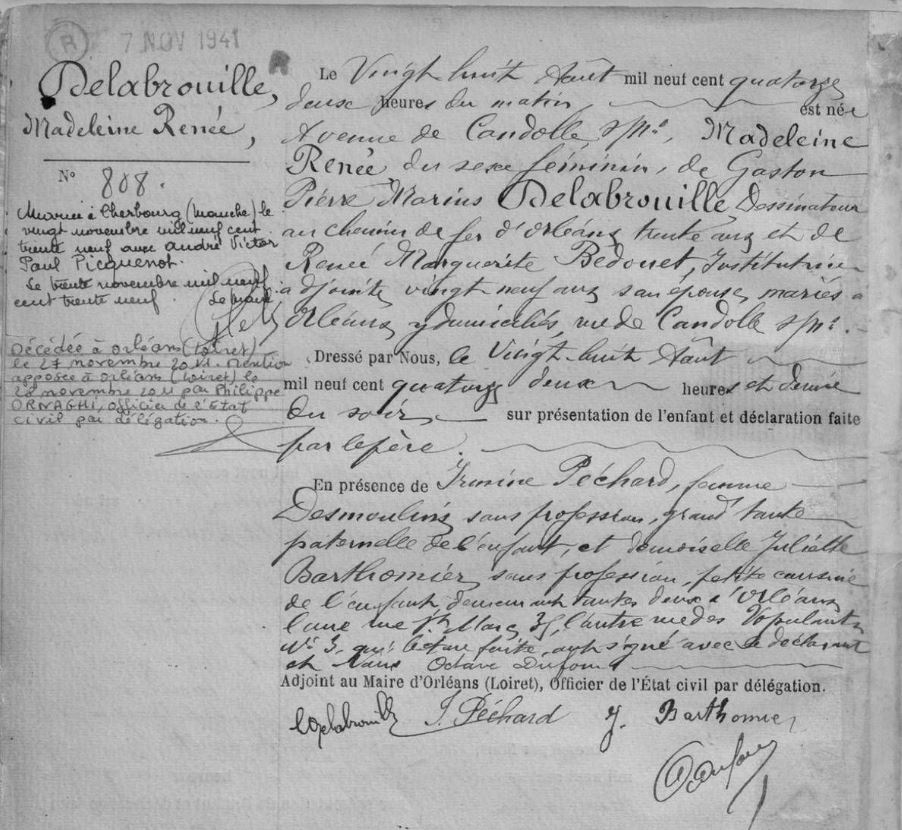 R 7 NOV 1941
Delabrouille,
Madeleine Renée,
N° 808.
Mariée à Cherbourg (Manche) le
vingt novembre mil neuf cent
trente neuf avec André Victor
Paul Picquenot.
Le trente novembre mil neuf
cent trente neuf. Le Maire
Décédée à Orléans (Loiret)
le 27 novembre 2011. Mention
apposée à Orléans (Loiret) le
28 novembre 2011 par Philippe
ORNAGHI, officier de l'Etat
civil par délégation.
Le Vingt huit Août mil neuf cent quatorze
deux heures du matin, est née
Avenue de Candolle Madeleine
Renée du sexe féminin, de Gaston
Pierre Marius Delabrouille, Dessinateur
au chemin de fer d'Orléans, trente ans et de
Renée Marguerite Bedouet, Institutrice
adjointe, vingt neuf ans, son épouse, mariés à
Orléans, y domiciliés, rue de Candolle
Dressé par Nous, le Vingt huit Août
mil neuf cent quatorze deux heures et demie
du soir sur présentation de l'enfant et déclaration faite
par le père.
En présence de Péchard, femme
Desmoulins, sans profession, grand'tante
paternelle de l'enfant, et demoiselle Juliette
Barthomier, sans profession, petite cousine
de l'enfant, demeurant toutes deux à Orléans,
l'une rue St Marc, 35, l'autre rue des
N° 3, qui, lecture faite, ont signé avec le déclarant
et Nous Octave Dufour
Adjoint au Maire d'Orléans (Loiret), Officier de l'État civil par délégation.
Delabrouille J. Péchard J. Barthomier